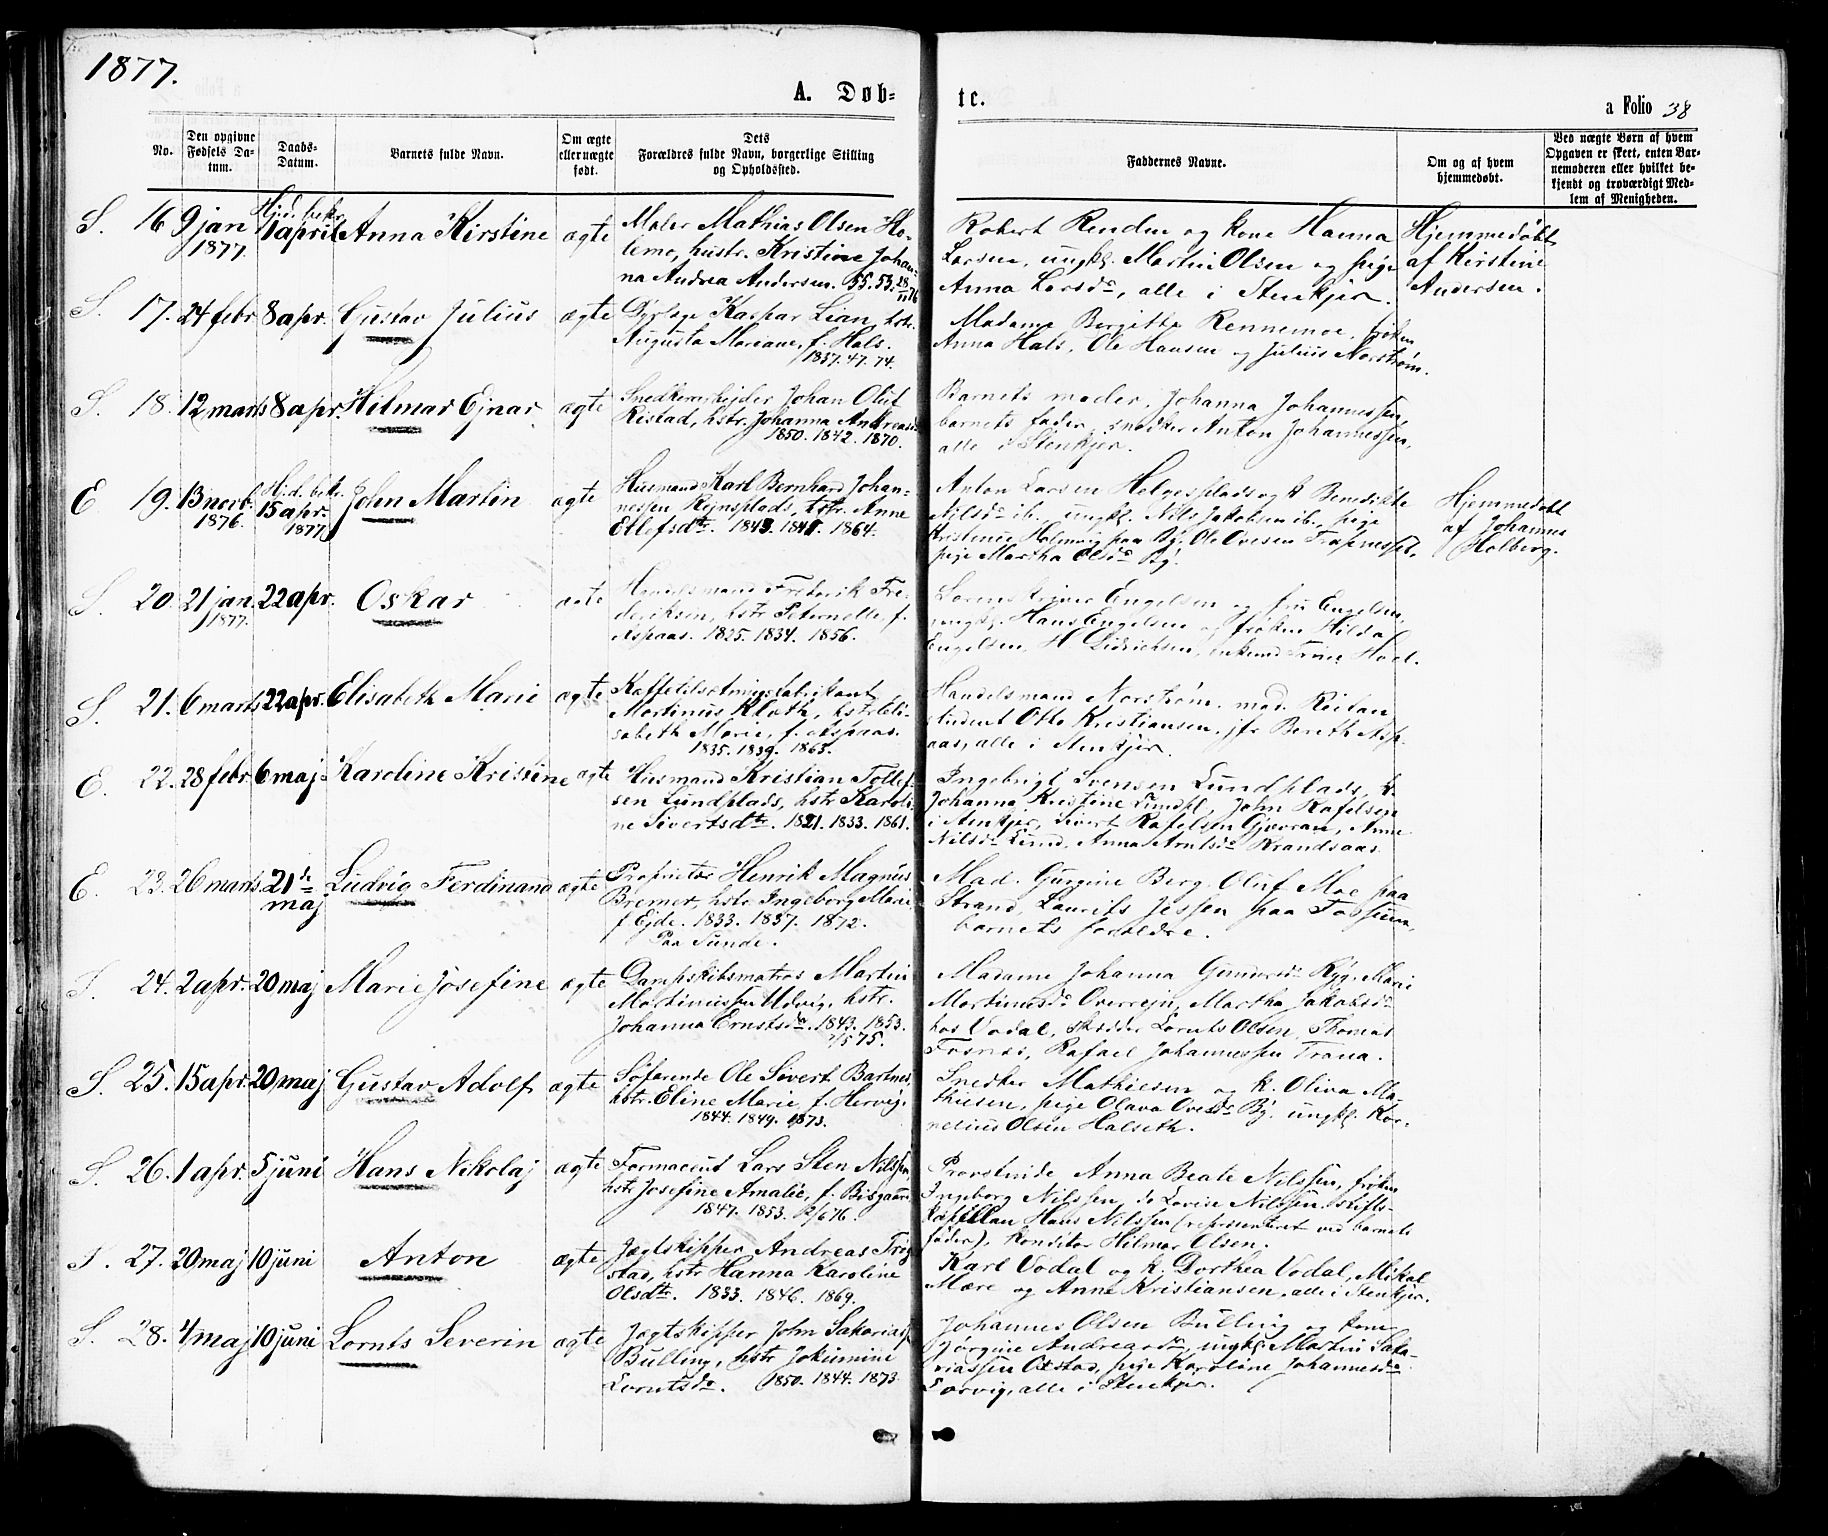 1877.
A. Døb-
te.
a Folio 38
No.
Den opgivne
Fødsels Da-
tum.
Daabs-
Datum.
Barnets fulde Navn.
Om ægte
eller uægte
født.
Dets
Forældres fulde Navn, borgerlige Stilling
og Opholdssted.
Faddernes Navne.
Om og af hvem
hjemmedøbt.
Ved uægte Børn af hvem
Opgaven er skeet, enten Bar-
nemoderen eller hvilket be-
kjendt og troværdigt Med-
lem af Menigheden.
S. 16 9 jan
1877.
Hj.d. bekr.
1 april
Anna Kirstine
ægte
Maler Mathias Olsen Ho-
lemo, hustr. Kristine Johan-
na Andrea Andersen. 55. 53. 28/11 76
Robert Rendum og kone Hanna
Larsen, ungkl. Martin Olsen og pige
Anna Larsdr, alle i Stenkjer.
Hjemmedøbt
af Kirstine
Andersen.
S. 17. 24 febr 8 apr. Gustav Julius
ægte
Dyrlæge Kaspar Lian, hstr.
Augusta Mariane, f. Hals.
1837. 47. 74.
Madame Bergitte Rennemoe, frøken
Anna Hals, Ole Hansen og Julius Norstrøm.
S. 18. 12 marts 8 apr. Hilmar Ejnar
ægte
Snedkerarbejder Johan Oluf
Ristad, hstr. Johanna Andreasd
1850. 1842. 1870.
Barnets moder, Johanna Johannessen,
barnets fader, snedker Anton Johannessen,
alle i Stenkjer.
E 19. 13 novb.
1876.
Hj.d. bekr.
15 apr.
1877
John Martin
ægte
Husmand Karl Bernhard Johan-
nessen Rejnsplads, hstr. Anne
Ellefsdtr. 1843. 1841. 1864.
Anton Larsen Helgesplads og k Benedikte
Nilsdr ib., ungkl. Nils Jakobsen ib., pige
Kristence Holmvig paa By, Ole Ovesen
pige Martha Olsdr By.
Hjemmedøbt
af Johannes
Holberg.
S. 20. 21 jan.
1877.
22 apr. Oskar
ægte
Handelsmand Frederik Fre-
deriksen, hstr Peternelle, f.
Aspaas. 1825. 1834. 1856.
Lorens Engelsen og fru Engelsen,
ungkl. Hans Engelsen og frøken Hilda
Engelsen, H Didrichsen, enkemd Hoel.
S. 21. 6 marts 22 apr. Elisabeth Marie
ægte
Martinus Kloth, hstr Eli-
sabeth Marie, f. Aspaas.
1835. 1839. 1865.
Handelsmand Norstrøm, mad. Reitan
student Otto Kristiansen, jfr Bereth Asp-
aas, alle i Stenkjer.
E. 22. 28 febr. 6 maj Karoline Kristine
ægte
Husmand Kristian Tollef-
sen Lundplads, hstr Karoli-
ne Sivertsdtr. 1821. 1833. 1861.
Ingebrigt Svensen Lundplads, k.
Johanna Kristine Lundpl., John Rafelsen
i Stenkjer, Sivert Rafelsen Gjævran, Anne
Nilsdr Lund, Anna Arntsdr Brandsaas.
E. 23. 26 marts 21de
maj
Ludvig Ferdinand
ægte
Proprietær Henrik Magnus
Bremer, hstr Ingeborg Marie
f Ejde. 1833. 1837. 1872.
Paa Sunde.
Mad. Gurgine Berg, Oluf Moe paa
Strand, Laurits Jessen paa Fossum,
barnets forældre.
S. 24. 2 apr. 20 maj Marie Josefine
ægte
Dampskibsmatros Martin
Martinussen Udvig, hstr.
Johanna Ernstsdr. 1843. 1853.
7/5 75.
Madame Johanna Gundersdr Ryg, Mari
Martinusdr Overrejn, Martha Jakobsdr
hos Vodal, skræder Lornts Olsen, Thomas
Fosnes, Rafael Johannessen Trana.
S. 25. 15 apr. 20 maj Gustav Adolf
ægte
Søfarende Ole Sivert Bartnes,
hstr. Eline Marie, f. Hervig.
1844. 1849. 1873.
Snedker Mathiesen og k. Oliva Ma-
thiesen, pige Olava Ovesdr By, ungkl. Kor-
nelius Olsen Halseth.
S. 26. 1 apr. 5 juni Hans Nikolaj
ægte
Farmaceut Lars Sten Nilssen,
hstr Josefine Amalie, f. Bisgaard
1847. 1853. 2/6 76.
Provstinde Anna Beate Nilssen, frøken
Ingeborg Nilssen, do Lovise Nilssen, stifts-
kapellan Hans Nilssen (representeret ved barnets
fader), konditor Hilmar Olsen.
S. 27. 20 maj 10 juni Anton
ægte
Jægtskipper Andreas Trøg-
stad, hstr Hanna Karoline
Olsdtr. 1833. 1846. 1869.
Karl Vodal og k. Dorthea Vodal, Mikal
Mære og Anne Kristiansen, alle i Stenkjer.
S. 28. 4 maj 10 juni Lornts Severin
ægte
Jægtskipper John Sakariass
Bulling, hstr Jokumine
Lorntsdr. 1850. 1844. 1873.
Johannes Olsen Bulling og kone
Jørgine Andreasdr, ungkl. Martin Saka-
riassen Oxstad, pige Karoline Johannesdr
Sorvig, alle i Stenkjer.